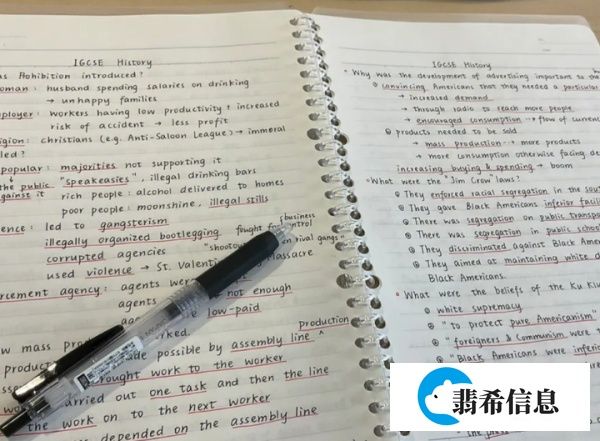 IGCSE History
as Prohibition introduced?
oman: husband spending salaries on drinking
→ unhappy families
ployer: workers having low productivity & increased
risk of accident → less profit
igion: christians (e.g. Anti-Saloon League) → immoral
led?
popular: majorities not supporting it
the public "speakeasies", illegal drinking bars
against it rich people: alcohol delivered to homes
poor people: moonshine, illegal stills
ence: led to gangsterism
business
illegally organized bootlegging fought for control
corrupted agencies "shootou en rival gangs"
used violence → St. Valenti Massacre
rcement agency: agents wer
agents not enough
low-paid
w mass pro worked.
production
made possible by assembly line ^
rought work to the worker
carried out one task and then the line
the work on to the next worker
depended on the assembly line
IGCSE History
Why was the development of advertising important to the
convincing Americans that they needed a particular
→ increased demand
→ through radio to reach more people
→ encouraged consumption → flow of currenc
products needed to be sold
→ mass production → more products
→ more consumption otherwise facing de
increasing buying & spending → boom
What were the "Jim Crow" laws?
They enforced racial segregation in the sout
They gave Black Americans inferior facili
There was segregation on public transpo
There was segregation in public school
They discriminated against Black Amer
They aimed at maintaining white d
Black Americans.
What were the beliefs of the Ku Klu
white supremacy
"to protect pure Americanism"
"foreigners & Communism were t
"Black Americans were inferio
翡希信息